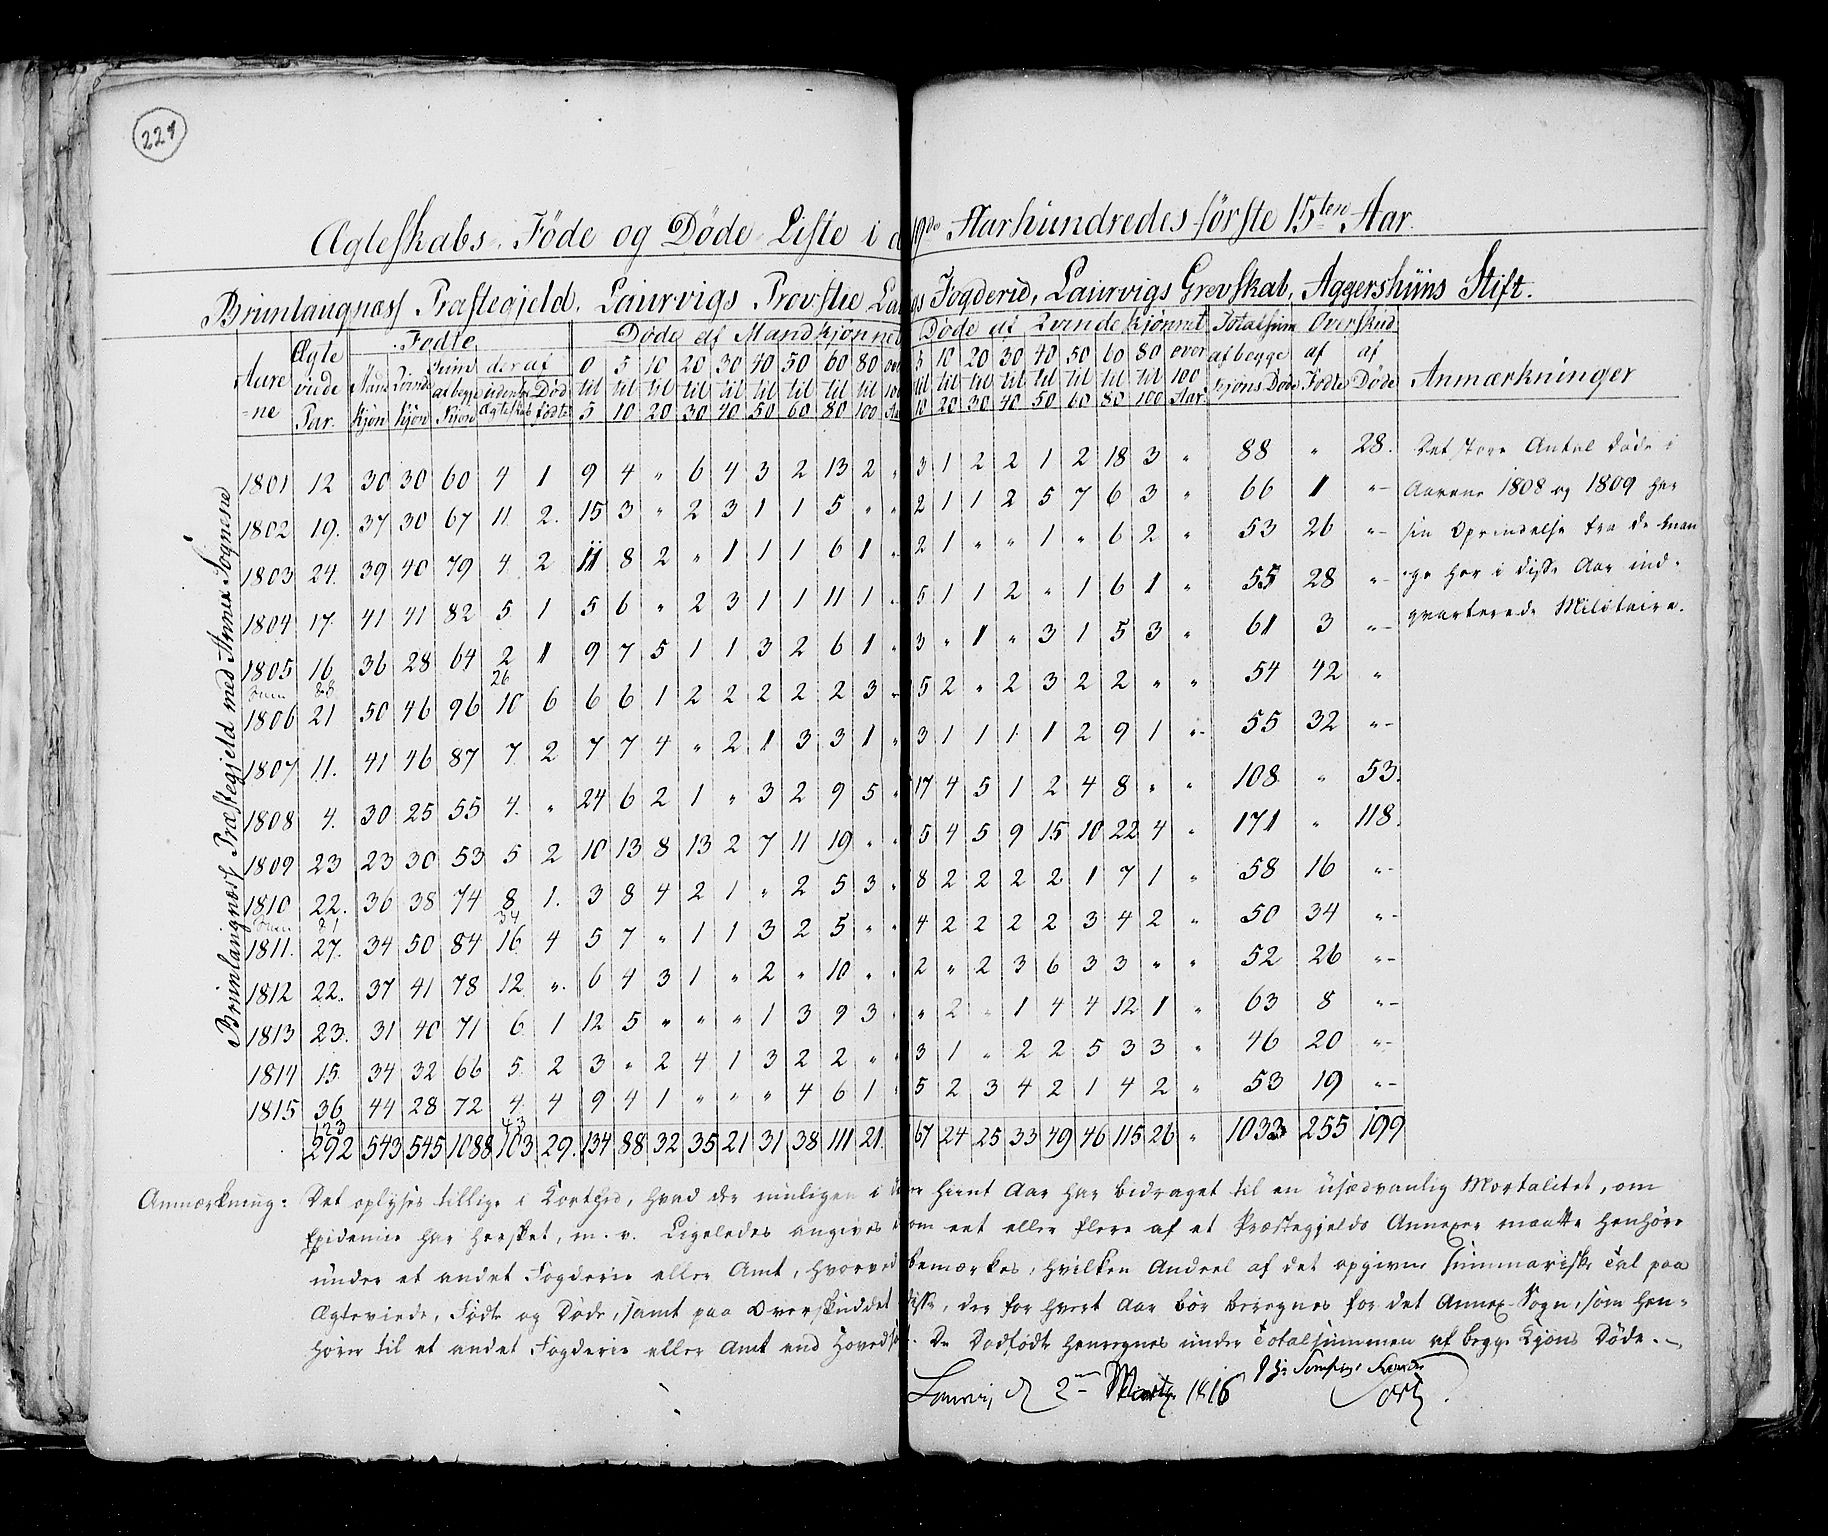 229
Ægteskabs- Føde og Døde Liste i d 19de Aarhundredes første 15ten Aar.
Brunlaugnæss Præstegjeld, Laurvigs Provstie Lau gs Fogderie, Laurvigs Grevskab, Aggershuus Stift.
Fødte Døde af Mandkjønnet Døde af Qvindekjønnet Totalsum Overskud
Aare-ne Ægte viede Par. Mand Kjøn Qvinde Kjøn Sum af begge Kjøn deraf udenfor Ægteskab Død fødte 0 til 5 5 til 10 10 til 20 20 til 30 30 til 40 40 til 50 50 til 60 60 til 80 80 til 100 5 til 10 10 til 20 20 til 30 30 til 40 40 til 50 50 til 60 60 til 80 80 til 100 over 100 Aar. af begge Kjøns Døde af Fødte af Døde Anmærkninger
Brunlaugnæss Præstegjeld med Annex Sognene
1801 12 30 30 60 4 1 9 4 " 6 4 3 2 13 2 " 3 1 2 2 1 2 18 3 " 88 " 28. Det store Antal døde i
1802 19. 37 30 67 11 2. 15 3 " 2 3 1 1 5 " " 2 1 1 2 5 7 6 3 " 66 1 " Aarene 1808 og 1809 har
1803 24. 39 40 79 4 2 11 8 2 " 1 1 1 6 1 " 2 1 " " 1 " 6 2 " 53 26 " sin Oprindelse fra de man
1804 17. 41 41 82 5 1 5 6 " 2 3 1 1 11 1 " 5 1 1 2 " 1 6 1 " 55 28 " ge her i disse Aar ind-
1805 16 36 28 64 2 1 9 7 5 1 1 3 2 6 1 " 3 " 1 " 3 1 5 3 " 61 3 " qvarterede Militaire.
Sum 88 26
1806 21 50 46 96 10 6 6 6 1 2 2 2 2 2 3 " 5 2 " 2 3 2 2 " " 54 42 "
1807 11. 41 46 87 7 2 7 7 4 " 2 1 3 3 1 " 3 1 1 1 1 2 9 1 " 55 32 "
1808 4. 30 25 55 4. " 24 6 2 1 " 3 2 9 5 " 17 4 5 1 2 4 8 " " 108 " 53.
1809 23 23 30 53 5 2 10 13 8 13 2 7 11 19 " " 5 4 5 9 15 10 22 4 " 171 " 118.
1810 22. 36 38 74 8 1. 3 8 4 2 1 " 2 5 3 " 8 2 2 2 2 1 7 1 " 58 16 "
Sum 81 34
1811. 27. 34 50 84 16 4 5 7 " 1 1 3 2 5 " " 4 2 2 2 2 3 4 2 " 50 34 "
1812 22. 37 41 78 12 " 6 4 3 1 " 2 " 10 " " 2 " 2 3 6 3 3 " " 52 26 "
1813 23. 31 40 71 6 1 12 5 " " " 1 3 9 3 " " 2 " 1 4 4 12 1 " 63 8 "
1814 15. 34 32 66 5 2 3 " 2 4 1 3 2 2 " " 3 1 " 2 2 5 3 3 " 46 20 "
1815 36 44 28 72 4 4 9 4 1 " " " 4 6 1 " 5 2 3 4 2 1 4 2 " 53 19 "
123 43
292 543 545 1088 103 29. 134 88 32 35 21 31 38 111 21. 67 24 25 33 49 46 115 26 " 1033 255 199
Anmærkning: Det oplyses tillige i Korthed, hvad der rimeligen i et hvert Aar har bidraget til en usædvanlig Mortalitet, om
Epidemie har hersket, m. v. Ligeledes angives om eet eller flere af et Præstegjelds Annexer maatte henhøre
under et andet Fogderie eller Amt, hvorved bemærkes, hvilken Andeel af det opgivne summariske Tal paa
Ægteviede, Fødte og Døde, samt paa Overskuddet disse, der for hvert Aar bør beregnes for det Annex-Sogn, som hen-
hører til et andet Fogderie eller Amt end Hoved . De Dødfødte henregnes under Totalsummen af begge Kjøns Døde.
d 2 Martz 1816